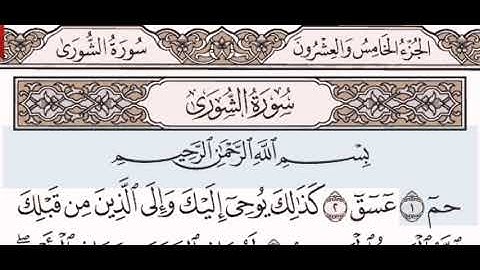 الجزء الخامس والعشرون
سورة الشورى
سُورَةُ الشُّورَىٰ
بِسْمِ اللَّهِ الرَّحْمَٰنِ الرَّحِيمِ
حمٓ ١ عٓسٓقٓ ٢ كَذَٰلِكَ يُوحِىٓ إِلَيْكَ وَإِلَى الَّذِينَ مِن قَبْلِكَ